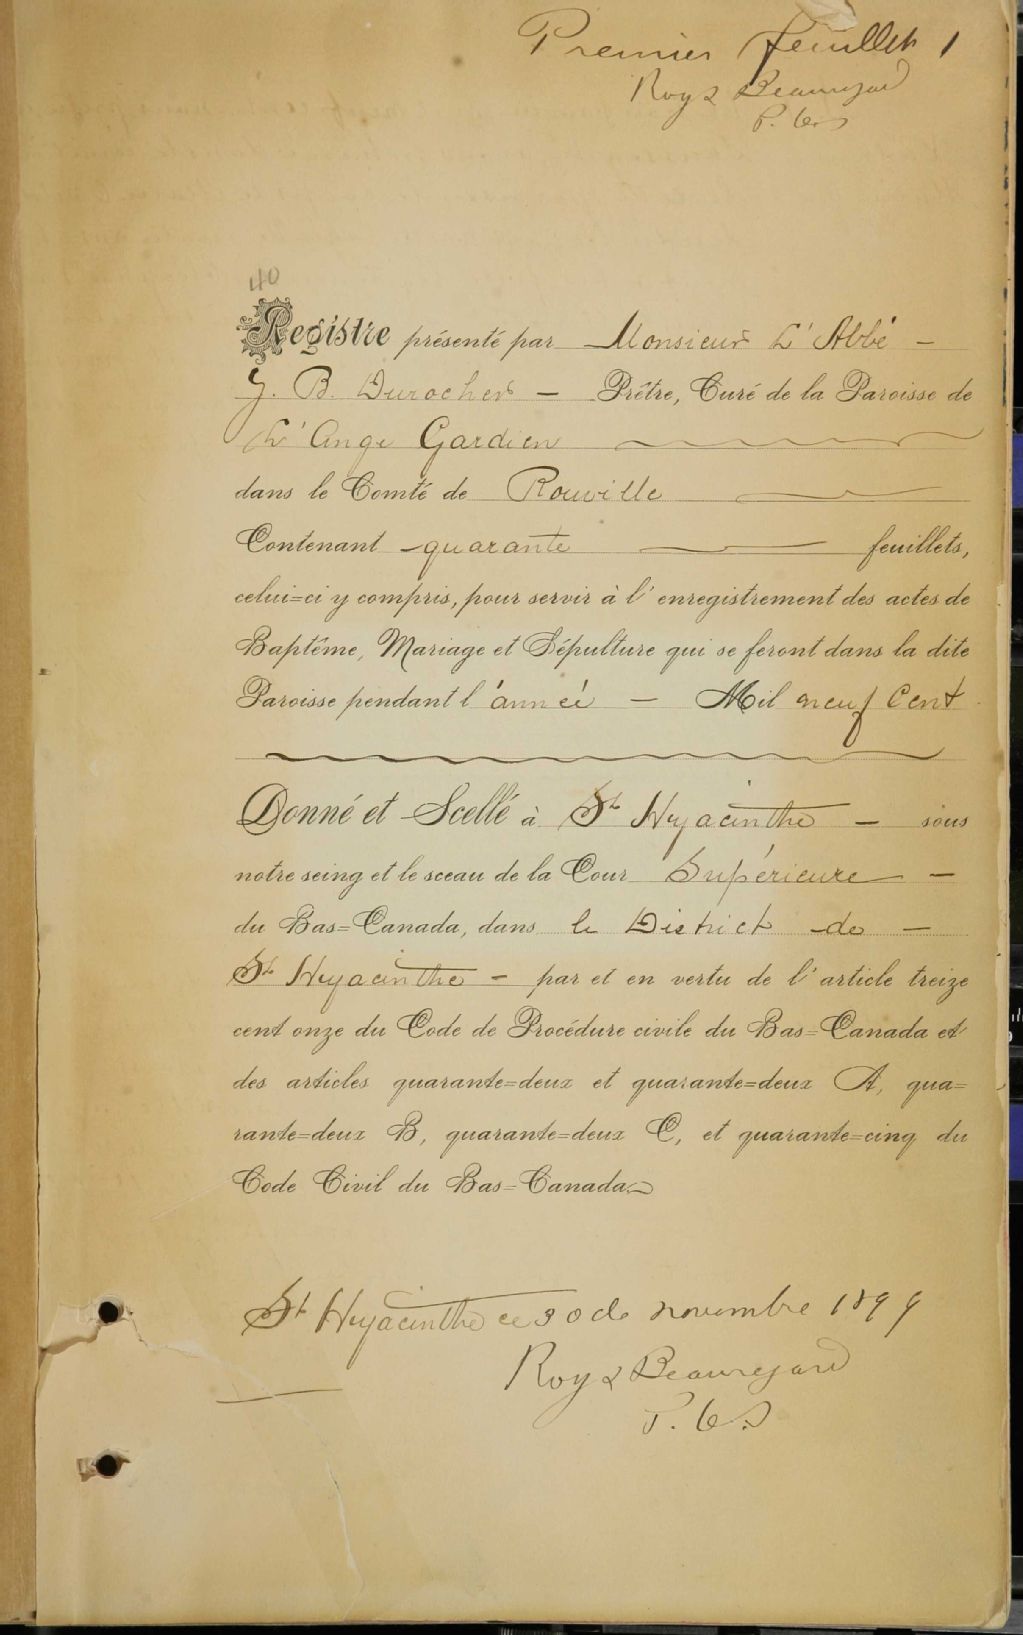 Premier feuillet 1
Roy & Beauregard
P. C. S
40
Registre présenté par Monsieur L'Abbé -
J. B. Durocher - Prêtre, Curé de la Paroisse de
L'Ange Gardien
dans le Comté de Rouville
Contenant quarante feuillets,
celui=ci y compris, pour servir à l'enregistrement des actes de
Baptême, Mariage et Sépulture qui se feront dans la dite
Paroisse pendant l'année - Mil neuf Cent
Donné et Scellé à St Hyacinthe - sous
notre seing et le sceau de la Cour Supérieure -
du Bas=Canada, dans le District de -
St Hyacinthe - par et en vertu de l'article treize
cent onze du Code de Procédure civile du Bas=Canada et
des articles quarante=deux et quarante=deux A, qua=
rante=deux B, quarante=deux C, et quarante=cinq du
Code Civil du Bas=Canada.
St Hyacinthe ce 30 de novembre 1899
Roy & Beauregard
P. C. S.